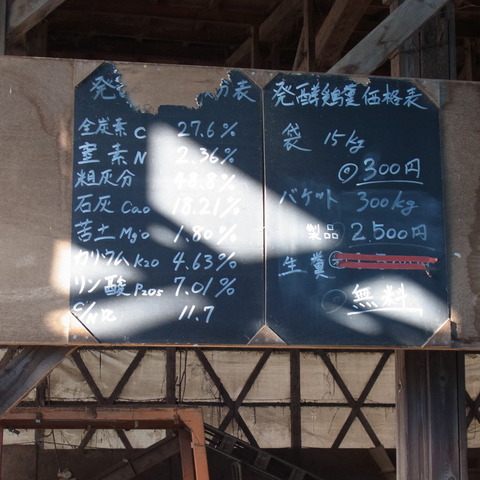 発 分表
全炭素 C 27.6%
窒素 N 2.36%
粗灰分 48.8%
石灰 CaO 18.21%
苦土 MgO 1.80%
カリウム K2O 4.63%
リン酸 P2O5 7.01%
C/N比 11.7
発酵鶏糞価格表
袋 15kg
300円
バケット 300kg
製品 2.500円
生糞
無料